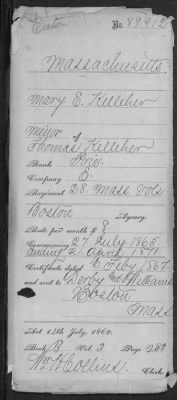 Eaton
No. 89912
Massachusetts
Mary E. Kelleher
Minor
of
Thomas Kelleher
Rank Priv.
Company E
Regiment 28. Mass Vols
Boston Agency.
Rate per month $ 8
Commencing 27 July 1865.
Ending 2 April 1871
Certificate dated Feby 1867
and sent to Derby & Williams
Boston
Mass
Act 14th July, 1862.
Book B Vol. 3 Page 260
Wm H Collins Clerk.